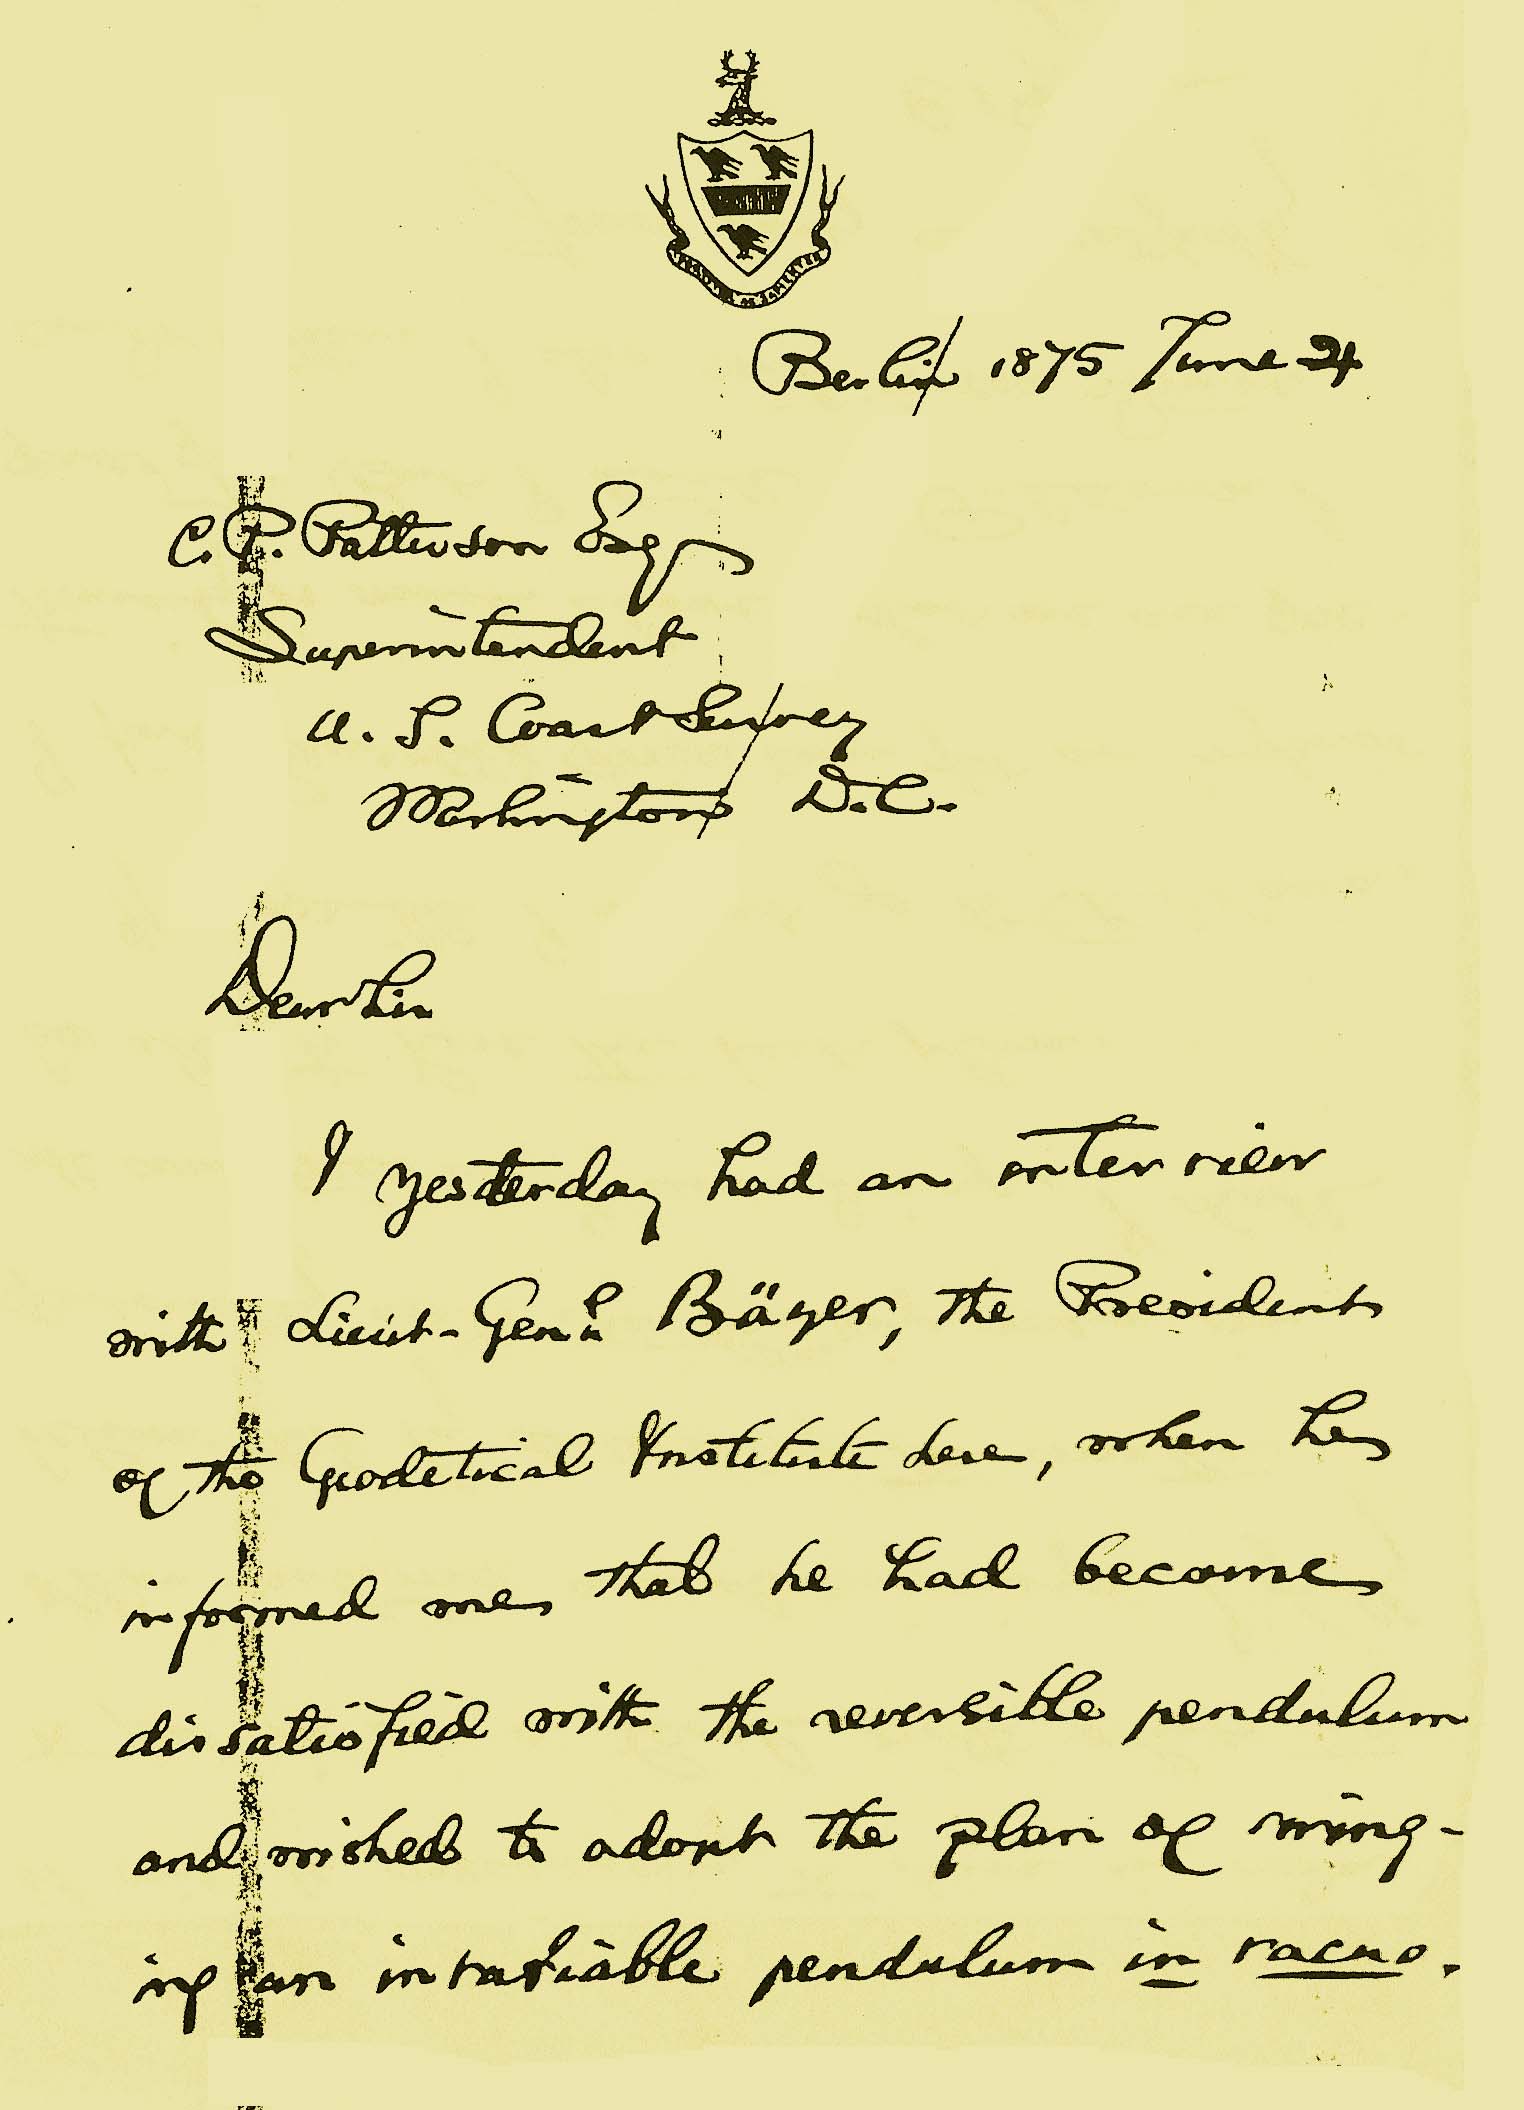 Berlin 1875 June 24
C. P. Patterson Esq
Superintendent
U. S. Coast Survey
Washington D.C.
Dear Sir
I yesterday had an interview
with Lieut-Genl Bäyer, the President
of the Geodetical Institute here, when he
informed me that he had become
dissatisfied with the reversible pendulum
and wished to adopt the plan of swing-
ing an invariable pendulum in vacuo.